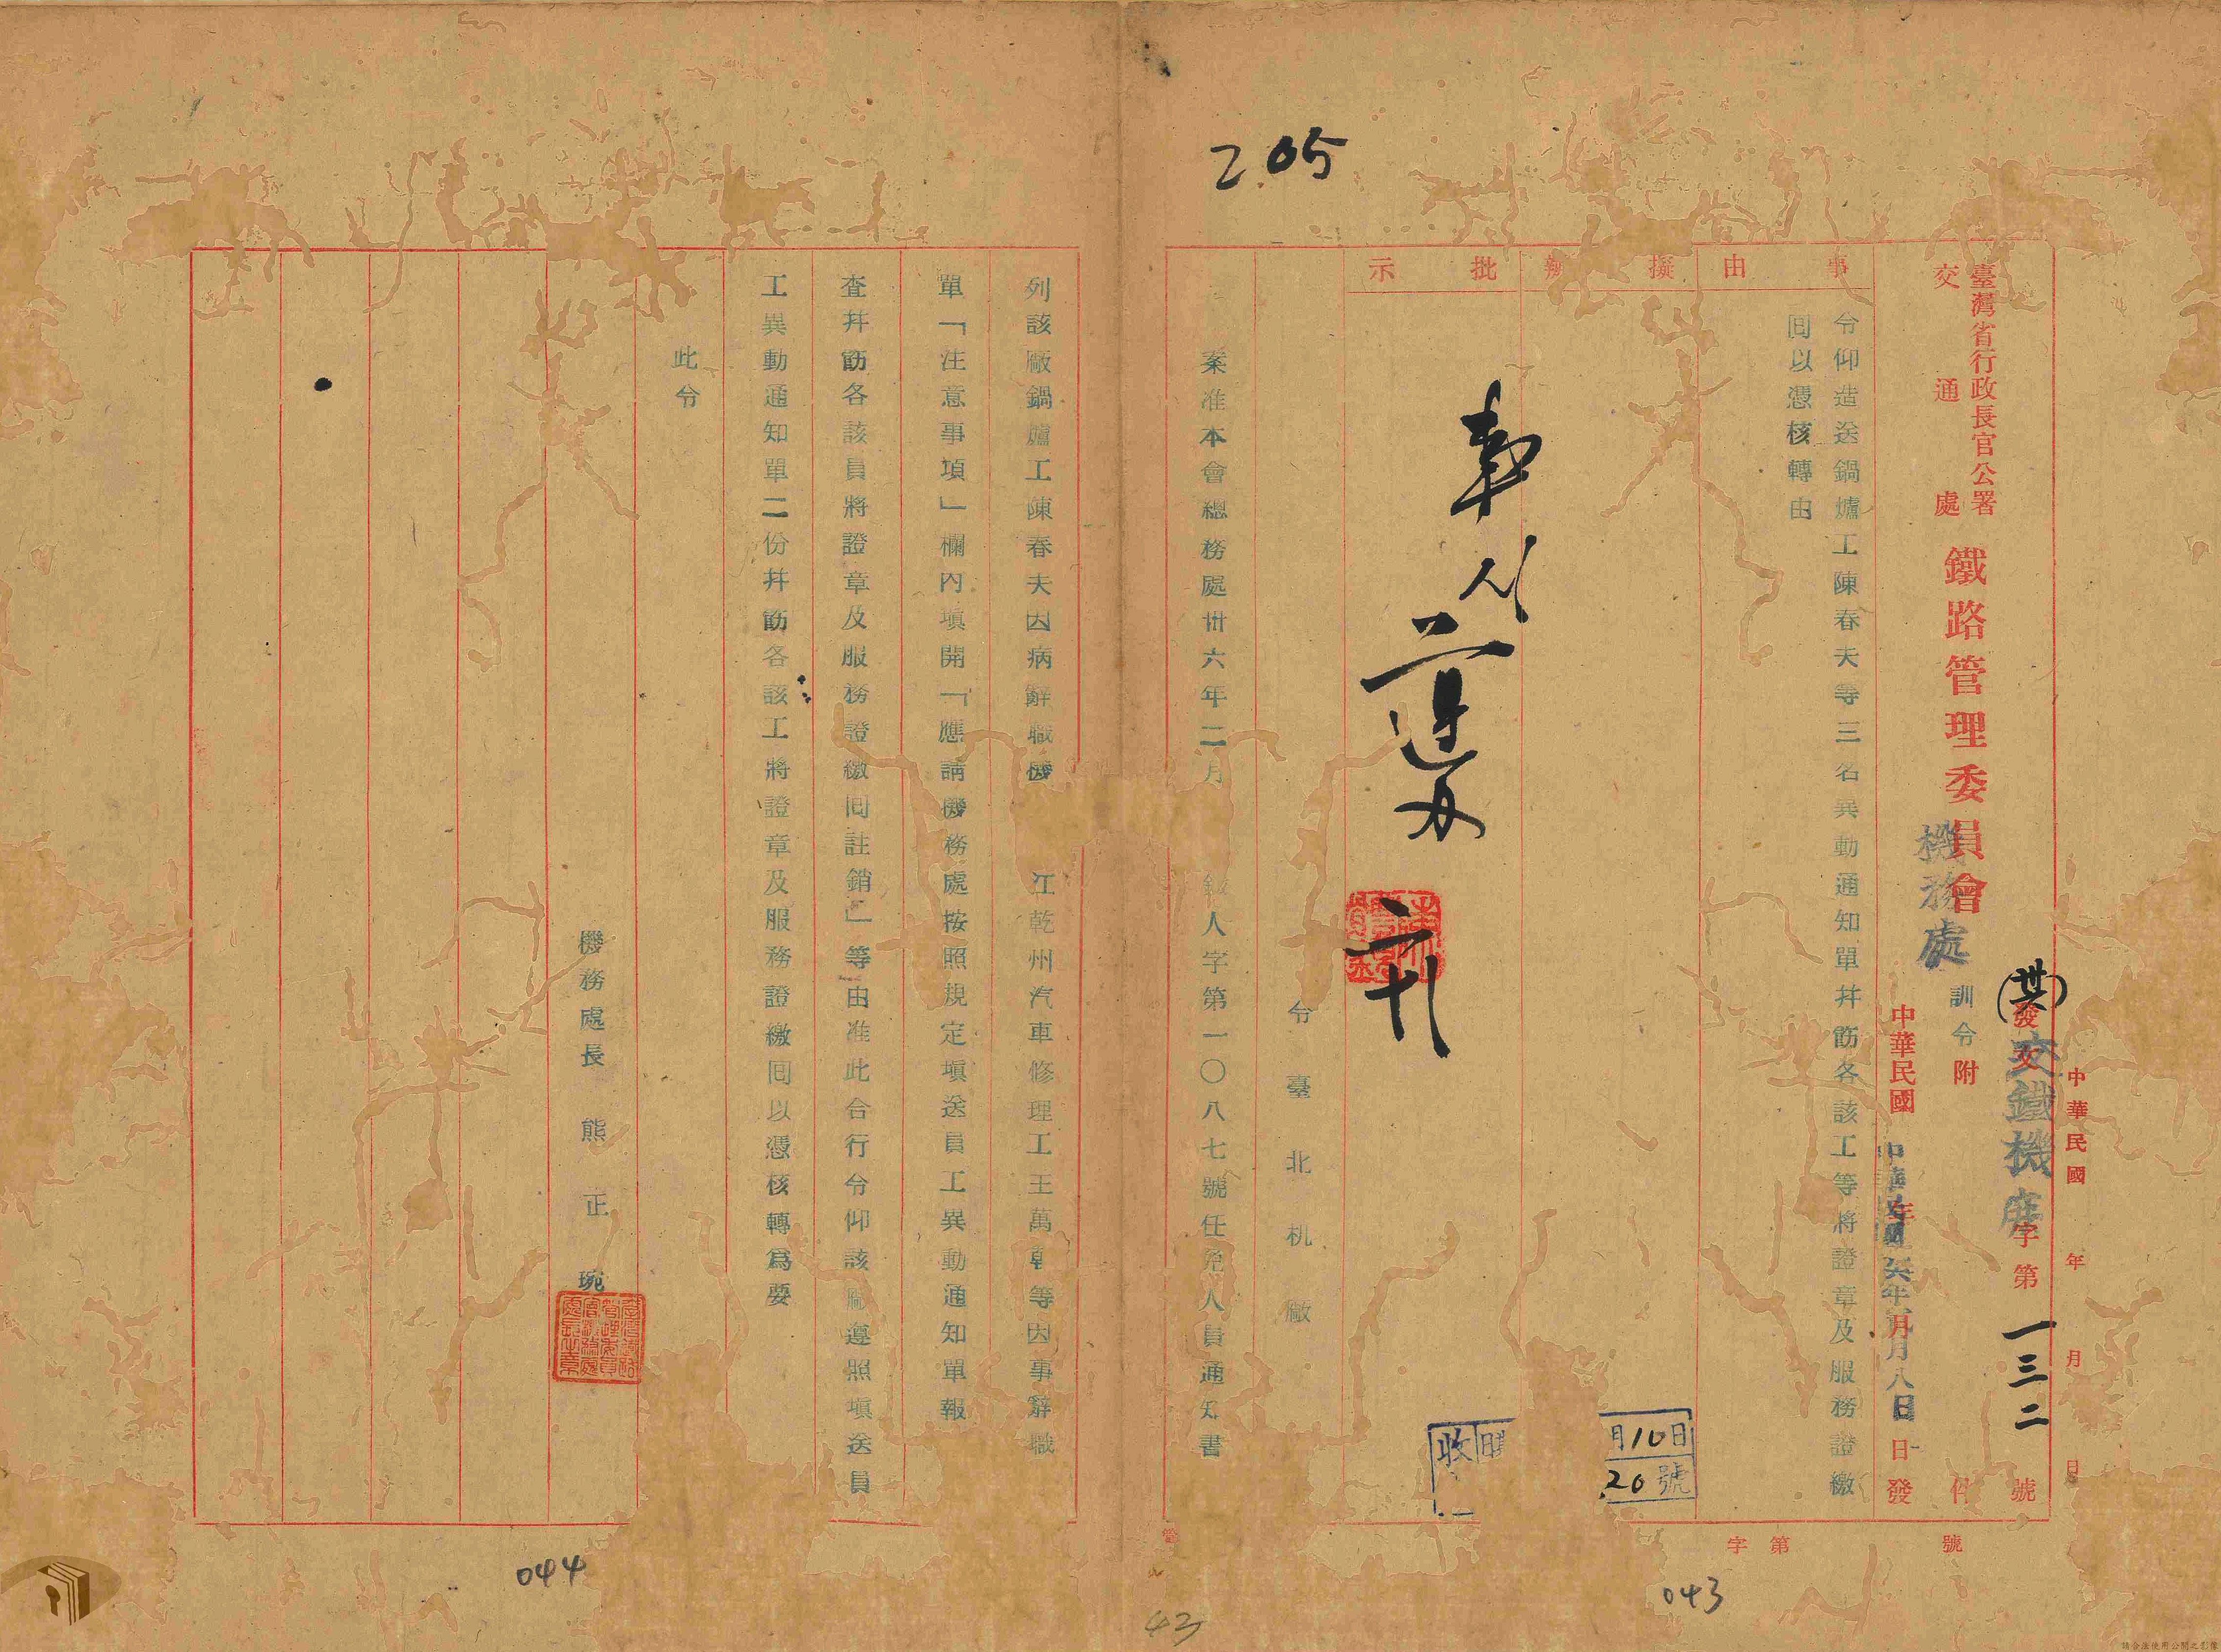 205
中華民國 年 月 日
(卅六)發文交鐵機庶字第一三二號
臺灣省行政長官公署
交通處
鐵路管理委員會
機務處
訓令 附 件
中華民國 年 月 日發
中華民國卅六年 月八日
事由
擬辦
批示
令仰造送鍋爐工陳春夫等三名異動通知單幷飭各該工等將證章及服務證繳
囘以憑核轉由
遵办
月10日
20號
收
令 臺北机廠
案准本會總務處卅六年二月 人字第一〇八七號任免人員通知書
列該廠鍋爐工陳春夫因病辭職機 江乾州汽車修理工王萬乾等因事辭職
單「注意事項」欄內塡開「應請機務處按照規定塡送員工異動通知單報
查幷飭各該員將證章及服務證繳囘註銷」等由准此合行令仰該廠遵照塡送員
工異動通知單二份幷飭各該工將證章及服務證繳囘以憑核轉爲要
此令
機務處長 熊正琬
字第 號
043
044
43
請合法使用公開之影像